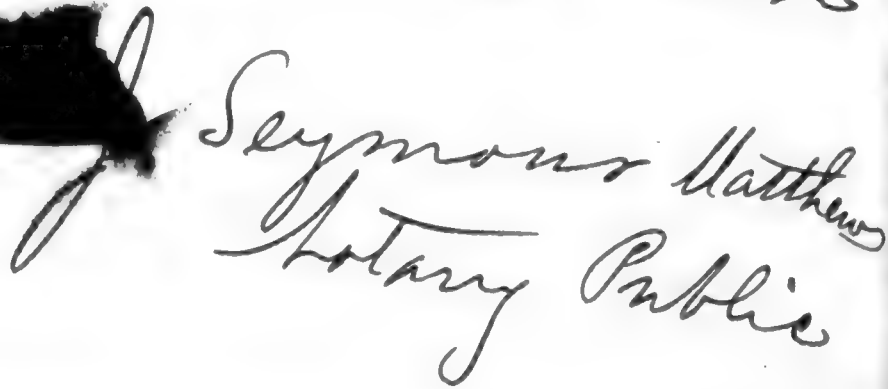 J Seymour Matthews
Notary Public